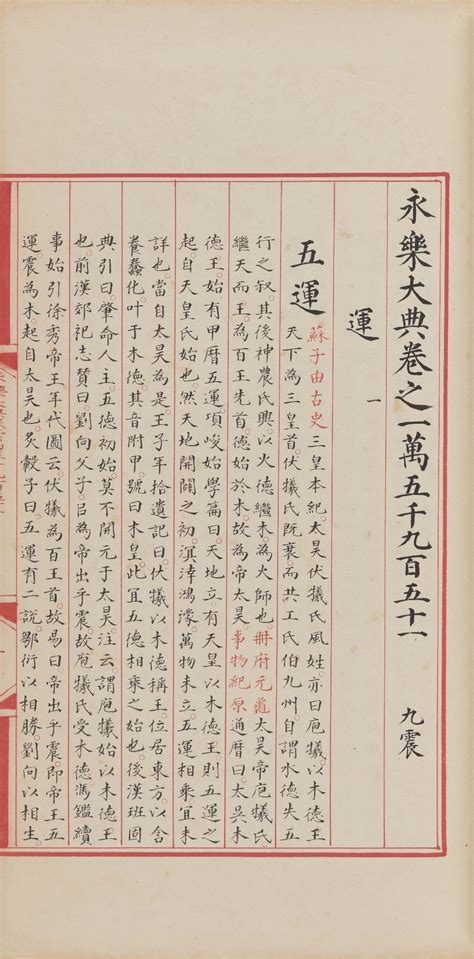 永樂大典卷之一萬五千九百五十一 九震
運 一
五運 蘇子由古史三皇本紀太昊伏犧氏風姓亦曰庖犧以木德王
天下為三皇首伏犧氏既衰而共工氏伯九州自謂水德失五
行之叙其後神農氏興以火德繼木為火師也冊府元龜太昊帝庖犧氏
繼天而王為百王先首德始於木故為帝太昊事物紀原通曆曰太昊木
德王始有甲曆五運項峻始學篇曰天地立有天皇以木德王則五運之
起自天皇氏始也然天地開闢之初溟涬鴻濛萬物未立五運相乘宜未
詳也當自太昊為是王子年拾遺記曰伏犧以木德稱王位居東方以含
養蠢化叶于木德其音附甲號曰木皇此宜五德相乘之始也後漢班固
典引曰肇命人主五德初始莫不開元于太昊注云謂庖犧始以木德王
也前漢郊祀志贊曰劉向父子㠯為帝出乎震故庖犧氏受木德馮鑑續
事始引徐秀帝王年代圖云伏犧為百王首故易曰帝出乎震即帝王五
運震為木起自太昊也炙轂子曰五運有二說鄒衍以相勝劉向以相生